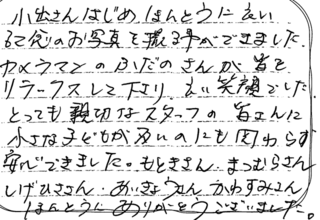 小出さんはじめ、ほんとうに良い
記念のお写真を撮る事ができました。
カメラマンの ふだのさんが皆を
リラックスして下さり、良い笑顔でした。
とっても親切なスタッフの皆さんに
小さな子どもが多いのにも関わらず
安心できました。もときさん、まつむらさん
しげひささん、あいきょうさん、かわすみさん
ほんとうにありがとうございました。